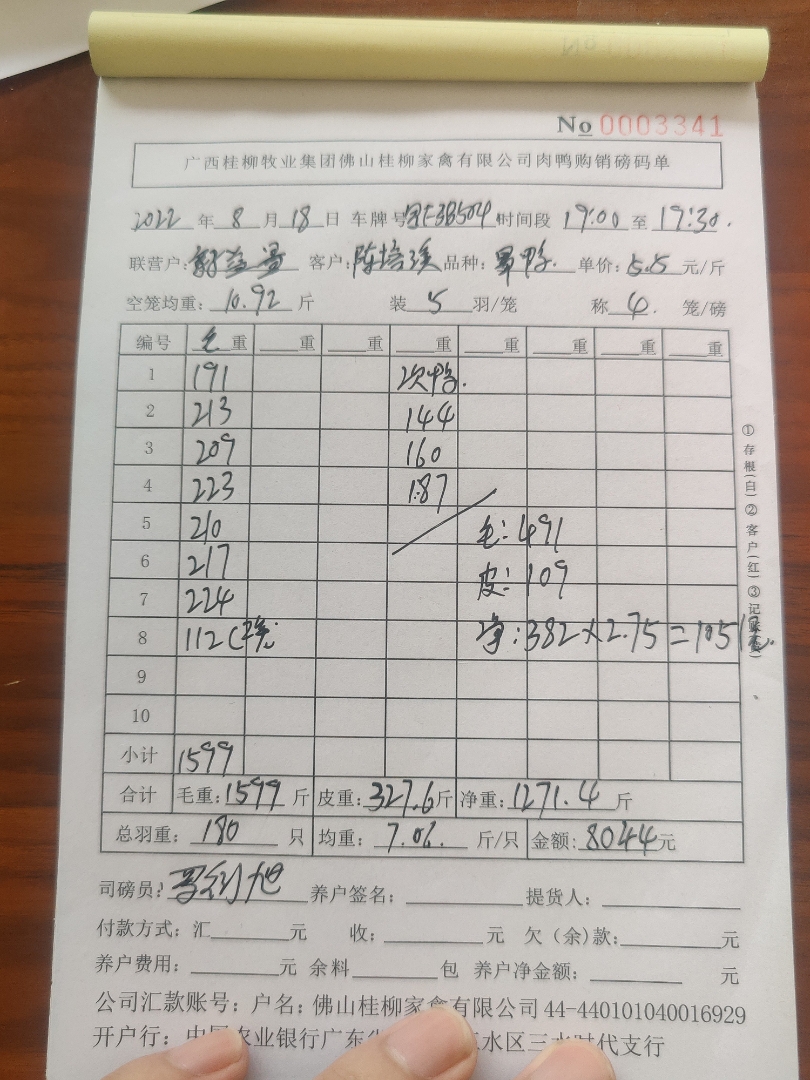 No 0003341
广西桂柳牧业集团佛山桂柳家禽有限公司肉鸭购销磅码单
2022 年 8 月 18 日 车牌号 时间段 17:00 至 17:30.
联营户: 客户:陈培 品种: 鸭. 单价: 5.5 元/斤
空笼均重: 10.92 斤 装 5 羽/笼 称 4. 笼/磅
编号 毛重 重 重 重 重 重 重 重
1 191 次鸭.
2 213 144
3 209 160
4 223 187
5 210 毛: 491
6 217 皮: 109
7 224
8 112(2笼 净: 382×2.75=1051元
9
10
小计 1599
合计 毛重: 1599 斤 皮重: 327.6斤 净重: 1271.4 斤
总羽重: 180 只 均重: 7.06. 斤/只 金额: 8044元
司磅员: 养户签名: 提货人:
付款方式: 汇 元 收: 元 欠(余)款: 元
养户费用: 元 余料 包 养户净金额: 元
公司汇款账号: 户名: 佛山桂柳家禽有限公司 44-440101040016929
开户行: 中国农业银行广东 三水区三水时代支行
①存根(白)②客户(红)③记账(黄)